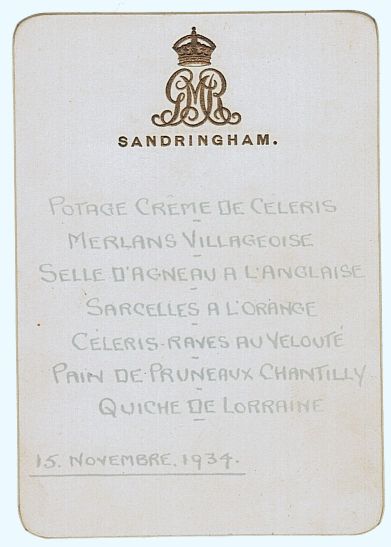 GMR
SANDRINGHAM.
POTAGE CRÊME DE CÉLERIS
MERLANS VILLAGEOISE
SELLE D'AGNEAU A L'ANGLAISE
SARCELLES A L'ORANGE
CÉLERIS-RAVES AU VELOUTÉ
PAIN DE PRUNEAUX CHANTILLY
QUICHE DE LORRAINE
15. NOVEMBRE. 1934.